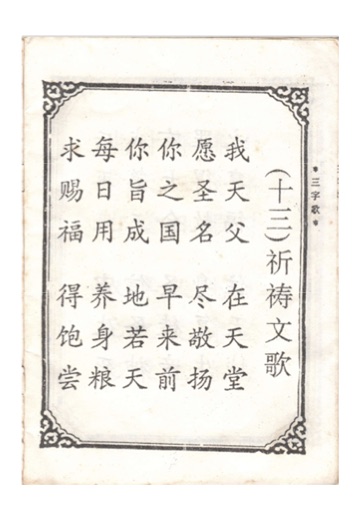 *三字歌*
(十三)祈祷文歌
我天父 在天堂
愿圣名 尽敬扬
你之国 早来前
你旨成 地若天
每日用 养身粮
求赐福 得饱尝